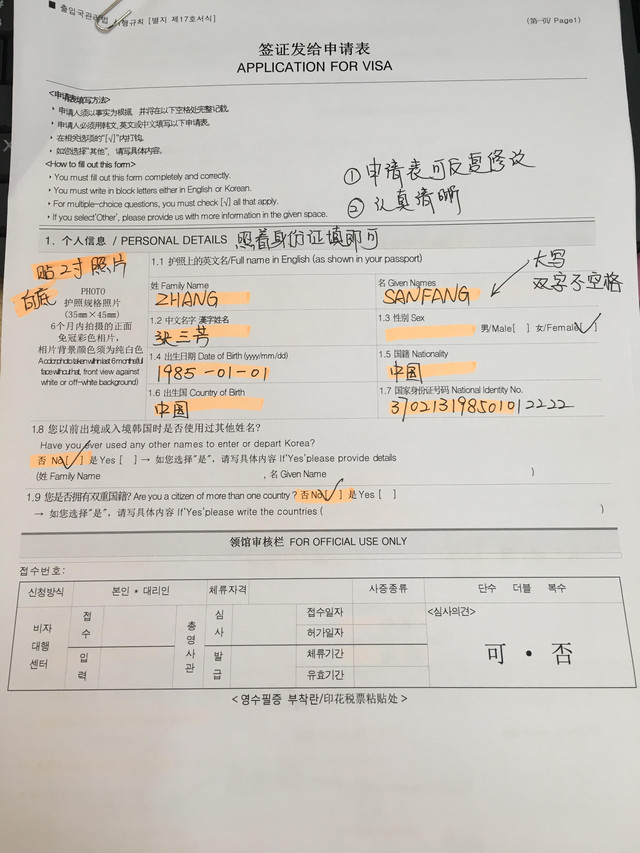 ■ 출입국관리법 시행규칙 [별지 제17호서식]
(第一页/ Page1)
签证发给申请表
APPLICATION FOR VISA
<申请表填写方法>
• 申请人须以事实为根据，并将在以下空格处完整记载.
• 申请人必须用韩文,英文或中文填写以下申请表。
• 在相关选项的"[√]"内打钩。
• 如您选择"其他"，请写具体内容。
<How to fill out this form>
• You must fill out this form completely and correctly.
• You must write in block letters either in English or Korean.
• For multiple-choice questions, you must check [√] all that apply.
• If you select'Other', please provide us with more information in the given space.
①申请表可反复修改
②认真清晰
1. 个人信息 / PERSONAL DETAILS 照着身份证填即可
贴2寸照片
白底
PHOTO
护照规格照片
(35mm×45mm)
6个月内拍摄的正面
免冠彩色相片,
相片背景颜色须为纯白色
A color photo taken within last 6 months(full face without hat, front view against
white or off-white background)
1.1 护照上的英文名/Full name in English (as shown in your passport)
大写
双字不空格
姓 Family Name
ZHANG
名 Given Names
SANFANG
1.2 中文名字 漢字姓名
张三芳
1.3 性别 Sex
男/Male[ ] 女/Female[√]
1.4 出生日期 Date of Birth (yyyy/mm/dd)
1985-01-01
1.5 国籍 Nationality
中国
1.6 出生国 Country of Birth
中国
1.7 国家身份证号码 National Identity No.
370213198501012222
1.8 您以前出境或入境韩国时是否使用过其他姓名?
Have you ever used any other names to enter or depart Korea?
否 No[√] 是Yes [ ] → 如您选择"是"，请写具体内容 If'Yes'please provide details
(姓 Family Name , 名 Given Name )
1.9 您是否拥有双重国籍? Are you a citizen of more than one country ? 否 No[√] 是Yes [ ]
→ 如您选择"是"，请写具体内容 If'Yes'please write the countries ( )
领馆审核栏 FOR OFFICIAL USE ONLY
접수번호:
신청방식 본인 * 대리인 체류자격 사증종류 단수 더블 복수
비자
대행
센터
접
수
입
력
총
영
사
관
심
사
발
급
접수일자
허가일자
체류기간
유효기간
<심사의견>
可 • 否
<영수필증 부착란/印花税票粘贴处>